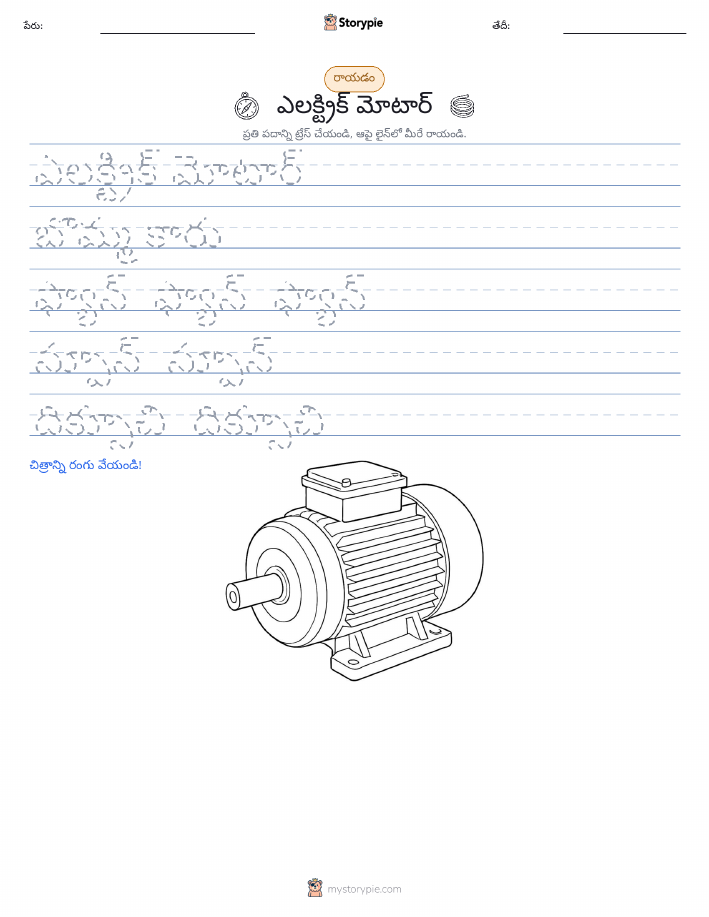 పేరు:
Storypie
తేదీ:
రాయడం
ఎలక్ట్రిక్ మోటార్
ప్రతి పదాన్ని ట్రేస్ చేయండి, ఆపై లైన్‌లో మీరే రాయండి.
ఎలక్ట్రిక్ మోటార్
బొమ్మ కారు
ఫ్యాన్ ఫ్యాన్ ఫ్యాన్
చిత్రాన్ని రంగు వేయండి!
mystorypie.com